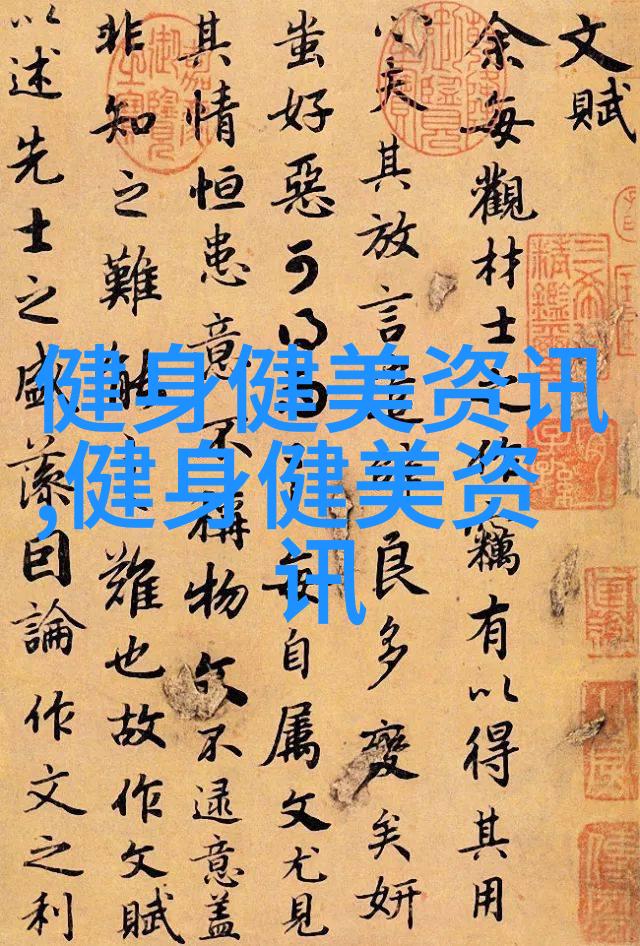 文賦
余每觀材士之作竊有以得其用
心夫其放言遣辭良多變矣妍
蚩好惡可得而言每自屬文尤見
其情恒患意不稱物文不逮意蓋
非知之難能之難也故作文賦
以述先士之盛藻因論作文之利
健身健美资讯
,健身健美资
讯